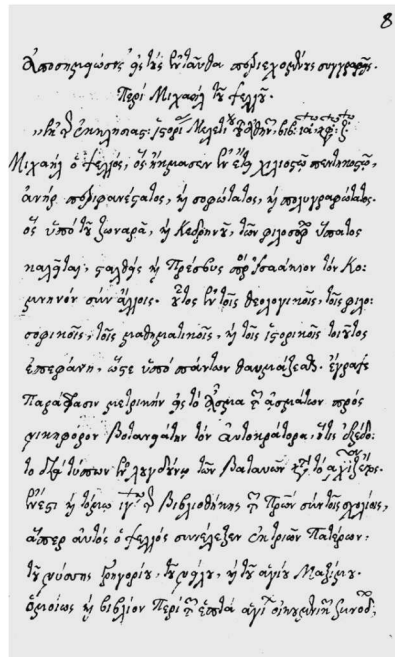 8
Ἀποσημειώσεις εἰς τοὺς ἐνταῦθα περιεχομένους συγγραφεῖς.
Περὶ Μιχαὴλ τοῦ Ψελλοῦ.
Ἐκ τῆς ἐκκλησιας: ἱστορί: Μελετίου Ἀθην: βιβ: κεφ:
Μιχαὴλ ὁ Ψελλὸς, ὃς ἤκμασεν ἐν ἔτει χιλιοστῷ πεντηκοστῷ,
ἀνὴρ περιφανέστατος, καὶ σοφώτατος, καὶ πολυγραφώτατος.
ὃς ὑπὸ τοῦ Ζωναρᾶ, καὶ Κεδρηνοῦ, τῶν φιλοσόφων ὕπατος
καλεῖται, σταλθεὶς καὶ Πρέσβυς πρὸς Ἰσαάκιον τὸν Κο:
μνηνὸν σὺν ἄλλοις. οὗτος ἐν τοῖς θεολογικοῖς, τοῖς φιλο:
σοφικοῖς, τοῖς μαθηματικοῖς, καὶ τοῖς ἱστορικοῖς τοιοῦτος
ἐπεφάνη, ὥστε ὑπὸ πάντων θαυμάζεσθαι. ἔγραψε
Παράφρασιν μετρικὴν εἰς τὸ ᾆσμα τῶν ᾀσμάτων πρὸς
νικηφόρον Βοτανειάτην τὸν αὐτοκράτορα, ἥτις ἐξεδό:
το διὰ τύπων ἐν λουγδούνῳ τῶν Βαταυῶν κατὰ τὸ αχιζ ἔτος.
ἔνεστι καὶ τόμῳ ιγῳ τῆς Βιβλιοθήκης τῶν Πρῶν σὺν τοῖς σχολίοις,
ἅπερ αὐτὸς ὁ Ψελλὸς συνέλεξεν ἐκ τριῶν Πατέρων:
τοῦ νύσσης Γρηγορίου, τοῦ νείλου, καὶ τοῦ ἁγίου Μαξίμου.
ὁμοίως καὶ βιβλίον Περὶ τῶν ἑπτὰ ἁγί οἰκουμενικῶν Συνόδ